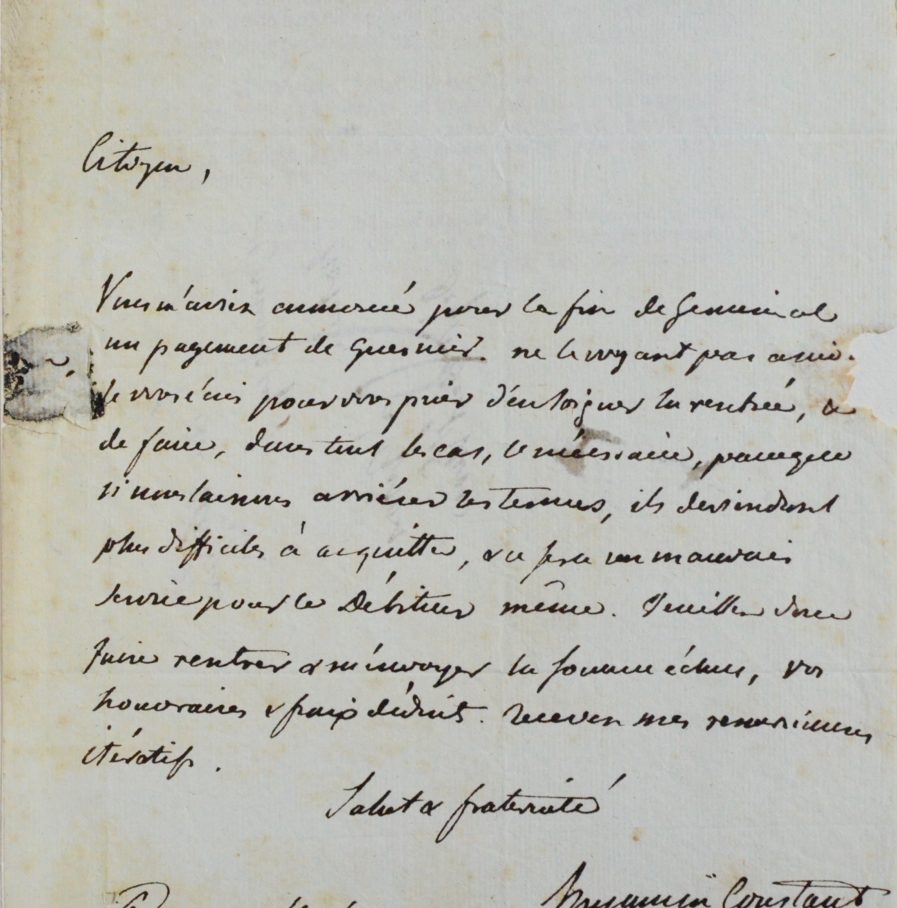 Citoyen,
Vous m'aviez annoncé pour la fin de Germinal
un payement de Guesnier. ne le voyant pas arriver
Je vous écris pour vous prier d'en soigner la rentrée, &
de faire, dans tout les cas, le nécessaire, parceque
si nous laissons arriérer les termes, ils deviendront
plus difficiles à acquitter, & ce sera un mauvais
service pour le Débiteur même. Veuillez donc
faire rentrer & m'envoyer la somme échue, vos
honoraires & fraix déduits. Recevez mes remerciemens
itératifs.
Salut & fraternité
Benjamin Constant